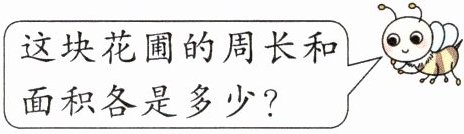 这块花圃的周长和
面积各是多少?